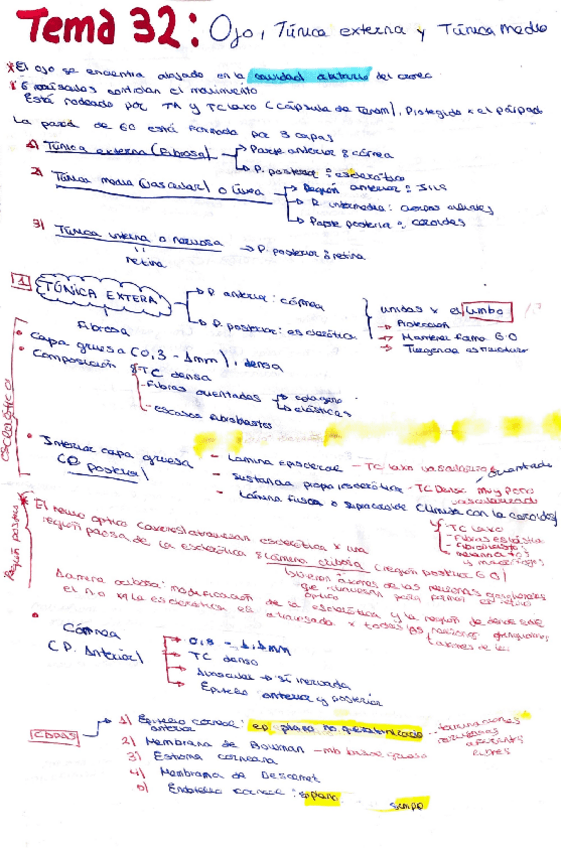 Tema 32: Ojo, Túnica externa y Túnica media
El ojo se encuentra alojado en la cavidad orbitaria del
6 músculos controlan el movimiento
Está rodeado por TA y TC laxo (cápsula de Tenon), Protegido x el párpado
La pared de GO está formada por 3 capas
1) Túnica externa (Fibrosa) → Parte anterior: córnea
→ P. posterior: esclerótica
2) Túnica media (vascular) o Úvea → Región anterior: iris
→ R. intermedia: cuerpos ciliares
→ Parte posterior: coroides
3) Túnica interna o nerviosa → P. posterior: retina
retina
1 TÚNICA EXTERA → P. anterior: córnea
→ P. posterior: esclerótica
unidas x el limbo
→ Protección
→ Mantener forma G.O
→ Turgencia
Fibrosa
Capa gruesa (0,3 - 1mm), densa
Composición: TC densa
- Fibras orientadas → colágeno
→ elásticas
- escasos fibroblastos
ESCLERÓTICA
Interior capa gruesa
(P. posterior)
- Lámina episcleral - TC laxo vascularizado
- Sustancia propia esclerótica - TC Denso muy poco vascularizado
- Lámina fusca o supracoroidea (límite con la coroides)
TC laxo
Fibras elásticas
Fibroblastos
y macrófagos
El nervio óptico
región de la esclerótica: lámina cribosa (región posterior G.O)
axones de las neuronas ganglionares
Lámina cribosa: modificación de la esclerótica y la región de donde sale
el No xq la esclerótica es atravesada x todos los
Córnea
(P. Anterior)
→ 0,8 - 1,1mm
→ TC denso
→ Avascular → sí inervada
→ Epitelio anterior y posterior
CAPAS → 1) Epitelio corneal anterior: ep. plano no queratinizado - terminaciones nerviosas
libres
2) Membrana de Bowman - mb basal gruesa
3) Estroma corneana
4) Membrana de Descemet
5) Endotelio corneal: ep. plano simple